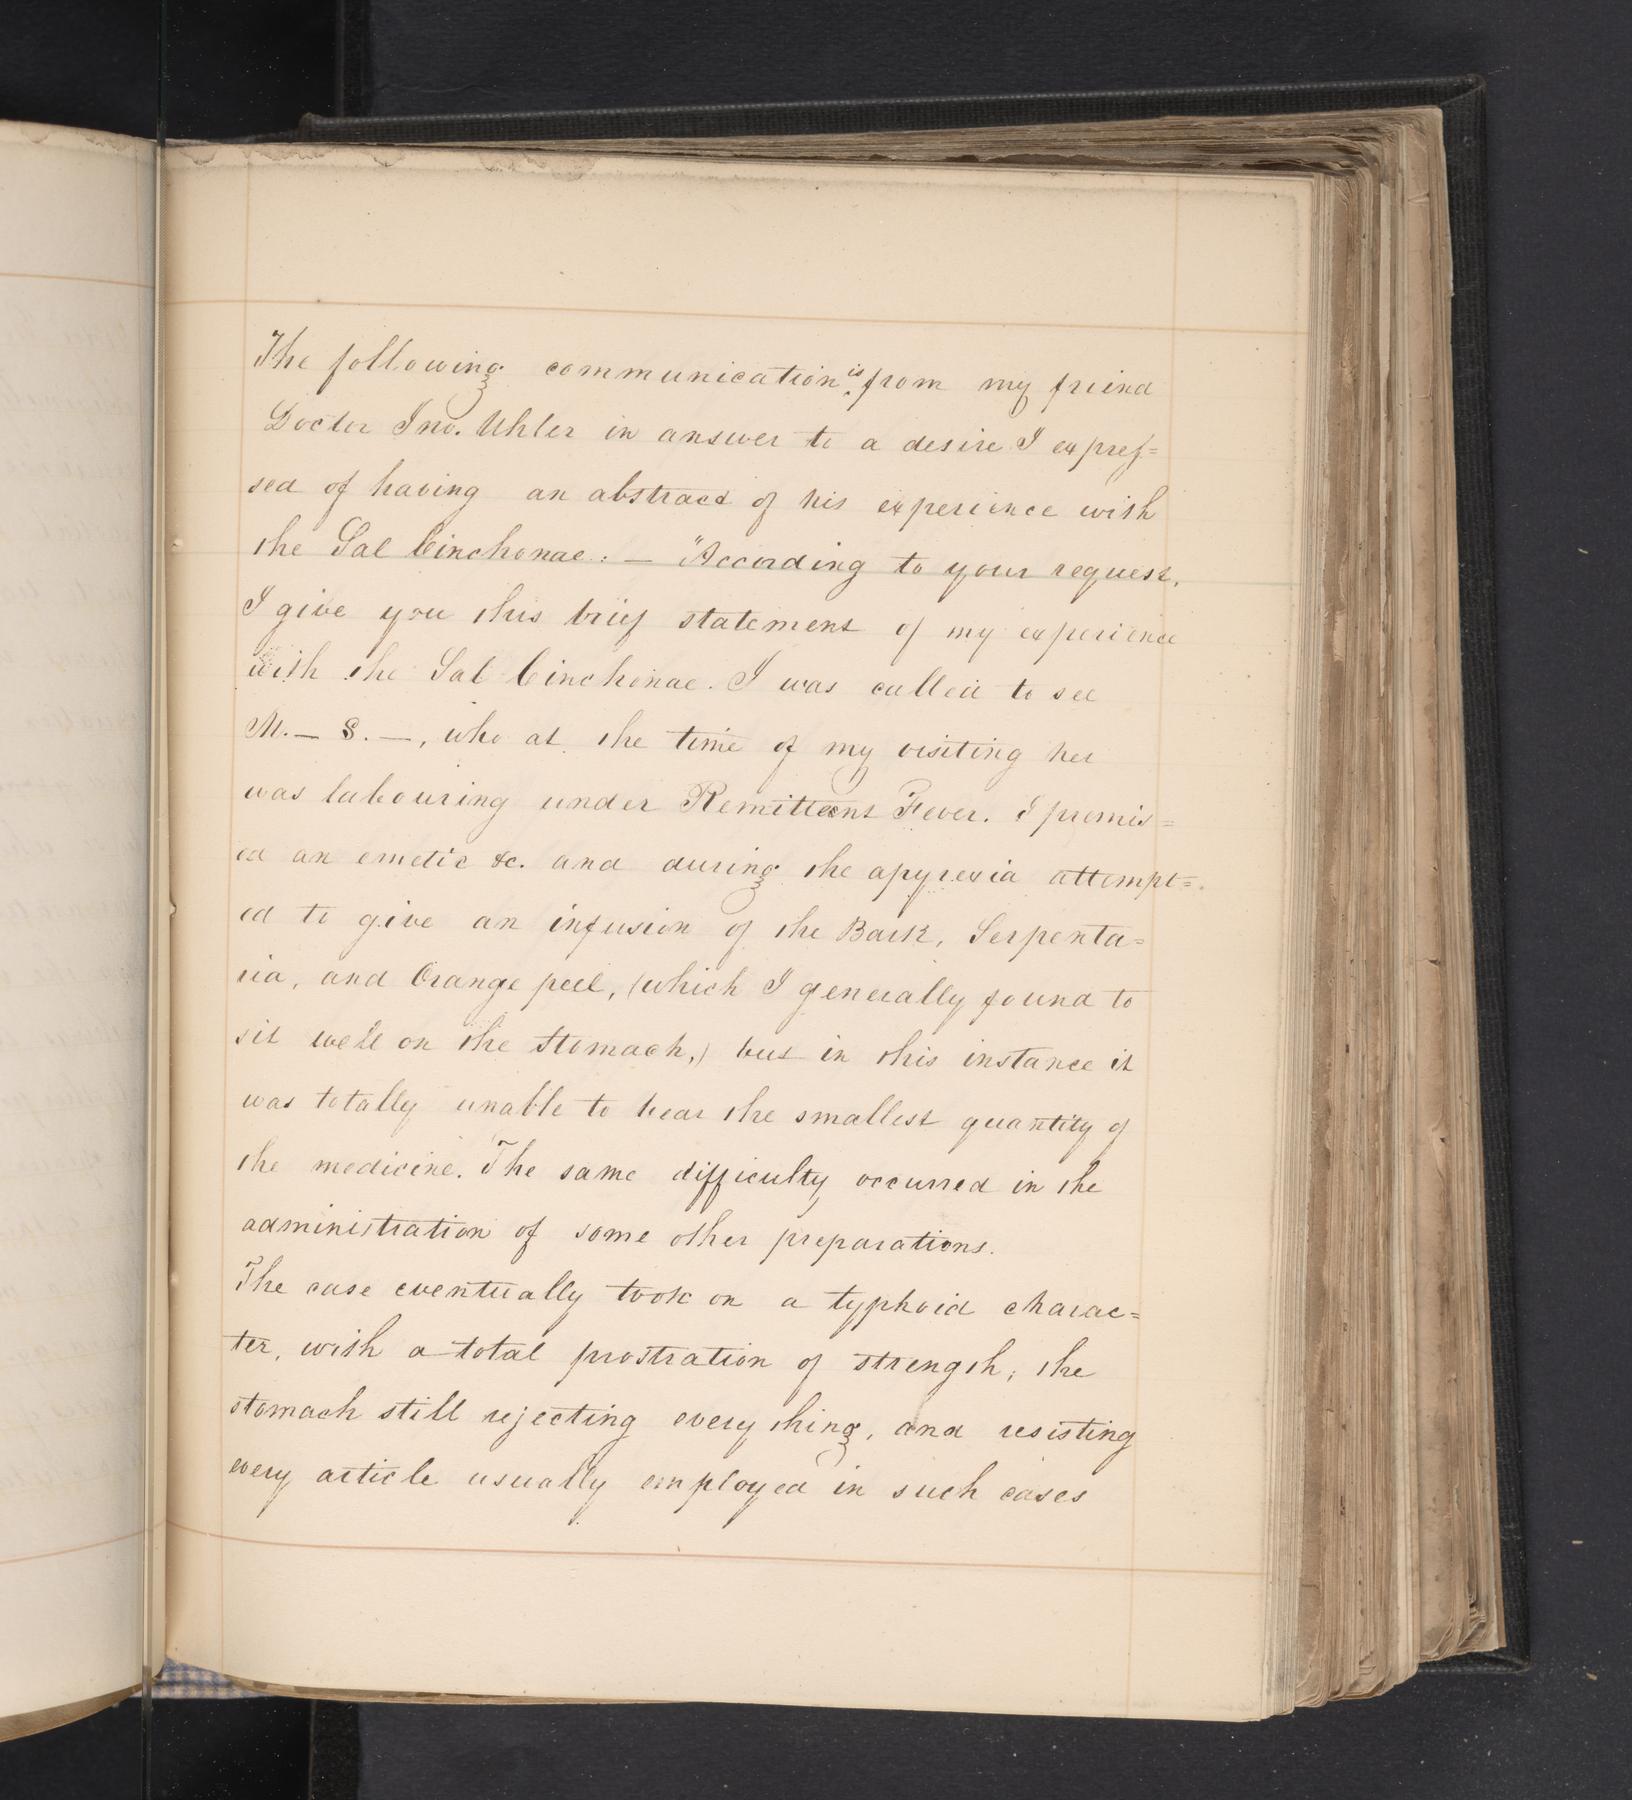 The following communication is from my friend
Doctor Jno. Uhler in answer to a desire I expres=
sed of having an abstract of his experience with
the Sal Cinchonae: — "According to your request,
I give you this brief statement of my experience
with the Sal Cinchonae. I was called to see
M. — S. —, who at the time of my visiting her
was labouring under Remittent Fever. I premis=
ed an emetic &c. and during the apyrexia attempt=
ed to give an infusion of the Bark, Serpenta=
ria, and Orange peel, (which I generally found to
sit well on the stomach,) but in this instance it
was totally unable to bear the smallest quantity of
the medicine. The same difficulty occurred in the
administration of some other preparations.
The case eventually took on a typhoid charac=
ter, with a total prostration of strength; the
stomach still rejecting every thing, and resisting
every article usually employed in such cases